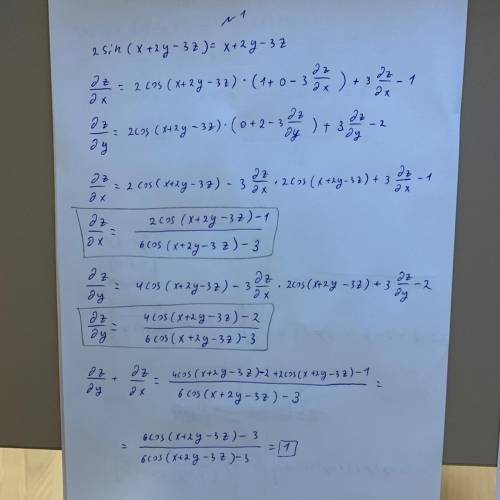 №1
2sin(x+2y-3z)=x+2y-3z
∂z/∂x = 2cos(x+2y-3z)·(1+0-3∂z/∂x)+3∂z/∂x-1
∂z/∂y = 2cos(x+2y-3z)·(0+2-3∂z/∂y)+3∂z/∂y-2
∂z/∂x = 2cos(x+2y-3z)-3∂z/∂x·2cos(x+2y-3z)+3∂z/∂x-1
∂z/∂x = (2cos(x+2y-3z)-1)/(6cos(x+2y-3z)-3)
∂z/∂y = 4cos(x+2y-3z)-3∂z/∂x·2cos(x+2y-3z)+3∂z/∂y-2
∂z/∂y = (4cos(x+2y-3z)-2)/(6cos(x+2y-3z)-3)
∂z/∂y + ∂z/∂x = (4cos(x+2y-3z)-2+2cos(x+2y-3z)-1)/(6cos(x+2y-3z)-3) =
= (6cos(x+2y-3z)-3)/(6cos(x+2y-3z)-3) = 1